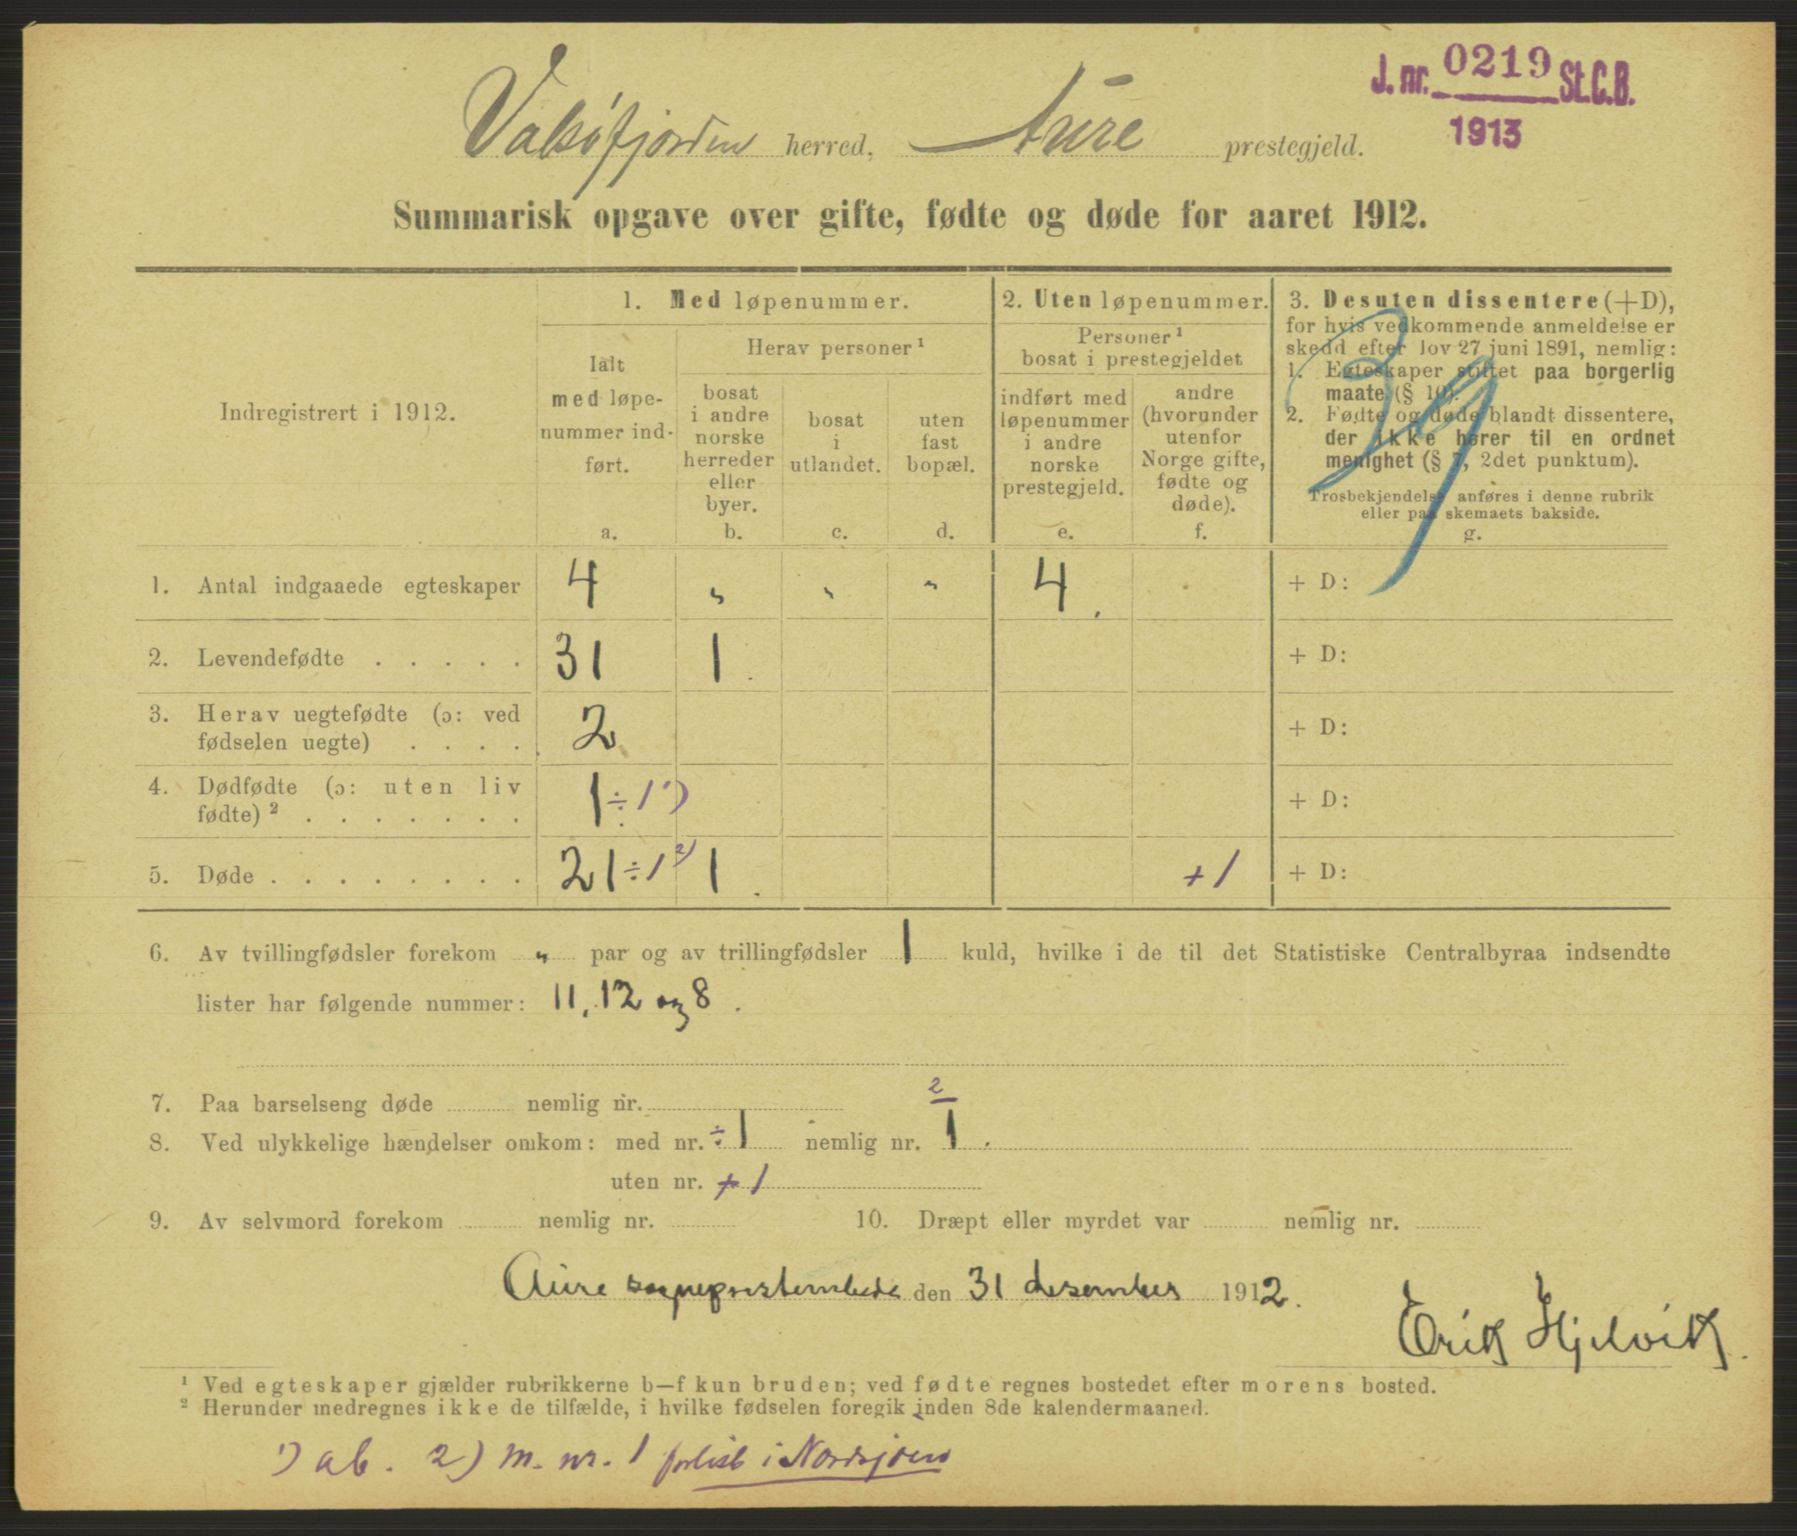 J. nr. 0219 St.C.B.
1913
Valsøfjorden herred, Aure prestegjeld.
Summarisk opgave over gifte, fødte og døde for aaret 1912.
Indregistrert i 1912.
1. Med løpenummer.
Ialt
med løpe-
nummer ind-
ført.
a.
Herav personer ¹
bosat
i andre
norske
herreder
eller
byer.
b.
bosat
i
utlandet.
c.
uten
fast
bopæl.
d.
2. Uten løpenummer.
Personer ¹
bosat i prestegjeldet
indført med
løpenummer
i andre
norske
prestegjeld.
e.
andre
(hvorunder
utenfor
Norge gifte,
fødte og
døde).
f.
3. Desuten dissentere (+D),
for hvis vedkommende anmeldelse er
skedd efter lov 27 juni 1891, nemlig:
1. Egteskaper stiftet paa borgerlig
maate (§ 10).
2. Fødte og døde blandt dissentere,
der ikke hører til en ordnet
menighet (§ 7, 2det punktum).
Trosbekjendelse anføres i denne rubrik
eller paa skemaets bakside.
g.
1. Antal indgaaede egteskaper 4 " " " 4. + D:
2. Levendefødte . . . . . 31 1. + D:
3. Herav uegtefødte (ɔ: ved
fødselen uegte) . . . . 2 + D:
4. Dødfødte (ɔ: uten liv
fødte) ² . . . . . . . 1 ÷ 1 ¹) + D:
5. Døde . . . . . . . . 21 ÷ 1 ²) 1. + 1 + D:
6. Av tvillingfødsler forekom " par og av trillingfødsler 1 kuld, hvilke i de til det Statistiske Centralbyraa indsendte
lister har følgende nummer: 11, 12 og 8.
7. Paa barselseng døde nemlig nr.
2
8. Ved ulykkelige hændelser omkom: med nr. ÷ 1 nemlig nr. 1.
uten nr. + 1
9. Av selvmord forekom nemlig nr. 10. Dræpt eller myrdet var nemlig nr.
Aure sogneprestembede den 31 desember 1912.
Erik Hjelvik.
¹ Ved egteskaper gjælder rubrikkerne b—f kun bruden; ved fødte regnes bostedet efter morens bosted.
² Herunder medregnes ikke de tilfælde, i hvilke fødselen foregik inden 8de kalendermaaned.
¹) ab. 2) m. nr. 1 forlist i Nordsjøen